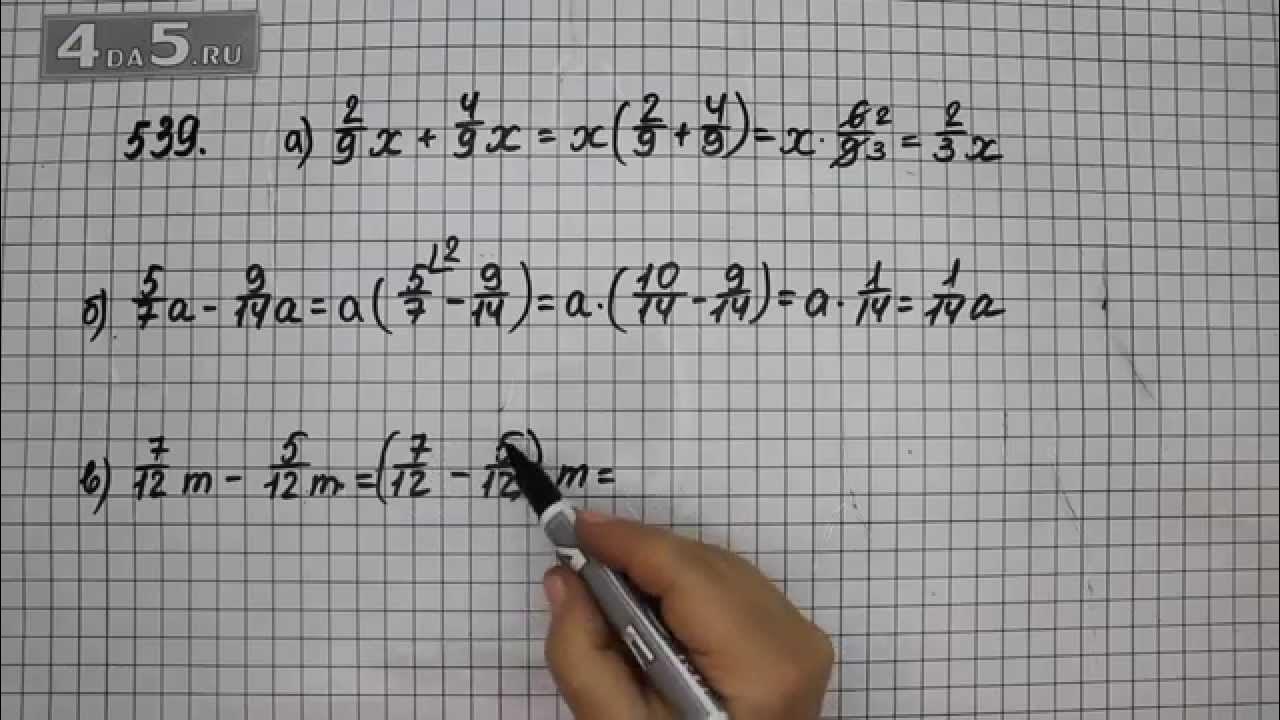 4DA5.RU
539. а) 2/9 x + 4/9 x = x(2/9 + 4/9) = x · 6/9 2/3 = 2/3 x
б) 5/7 a - 9/14 a = a(5/7 2 - 9/14) = a · (10/14 - 9/14) = a · 1/14 = 1/14 a
в) 7/12 m - 5/12 m = (7/12 - 5/12) m =